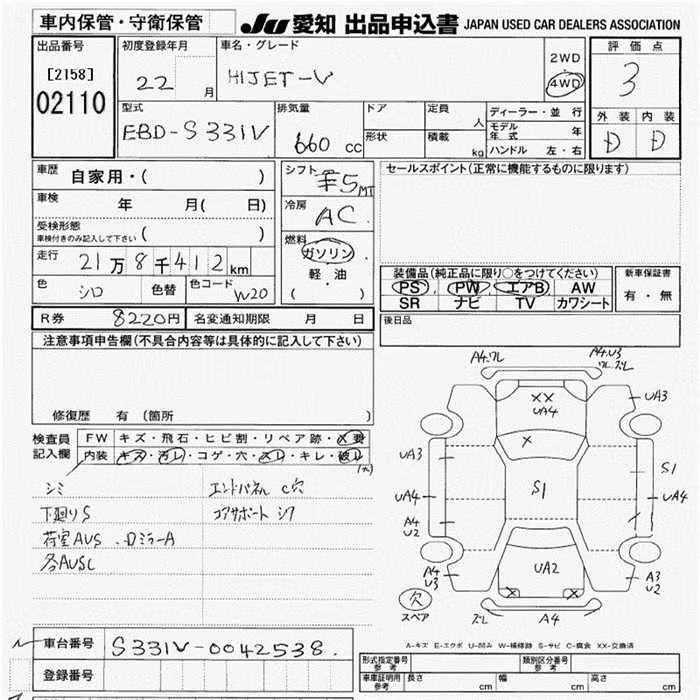 車内保管・守衛保管
JU 愛知 出品申込書 JAPAN USED CAR DEALERS ASSOCIATION
出品番号
[2158]
02110
初度登録年月
22 月
車名・グレード
HIJET-V
2WD
4WD
評価点
3
外装 内装
D D
型式
EBD-S331V
排気量
660 cc
ドア
形状
定員 人
積載 kg
ディーラー・並行
モデル年式 年
ハンドル 左・右
車歴 自家用・( )
車検 年 月( 日)
受検形態
車検付きのみ記入して下さい ( )
走行 21万8千412km
色 シロ 色替 色コード W20
シフト
F5MT
冷房
AC
燃料
ガソリン
軽・油
( )
セールスポイント(正常に機能するものに限ります)
装備品(純正品に限り○をつけてください)
PS PW エアB AW
SR ナビ TV カワシート
新車保証書
有・無
後日品
R券 8220円 名変通知期限 月 日
注意事項申告欄(不具合内容等は具体的に記入して下さい)
修復歴 有 (箇所 )
検査員記入欄
FW キズ・飛石・ヒビ割・リペア跡・X要
内装 キズ・汚レ・コゲ・穴・スレ・キレ・破レ
(大)
シミ エンドパネル C穴
下廻りS コアサポート シワ
荷室AUS .Dミラ-A
各AUSC
A4.ワレ
A4.U3
ワレ.ズレ
XX
UA4
UA3
X
UA3
S1
S1
UA4
UA4
A4
U2
UA2
A4
U3
X X
A3
U2
欠
スペア
ズレ
A4
A-キズ E-エクボ U-凹み W-補修跡 S-サビ C-腐食 XX-交換済
車台番号 S331V-0042538.
登録番号
形式指定番号
参考
類別区分番号
参考
車庫証明用
参考
長さ cm 幅 cm 高さ cm